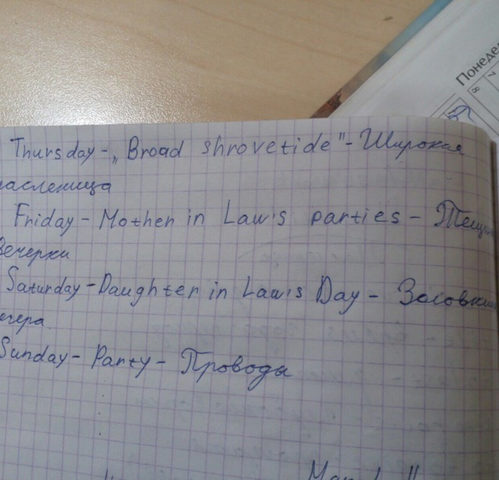 Понедел
7
8
Thursday - „Broad shrovetide" - Широкая
масленица
Friday - Mother in Law's parties - Тещины
Вечерки
Saturday - Daughter in Law's Day - Золовкины
вечера
Sunday - Party - Проводы